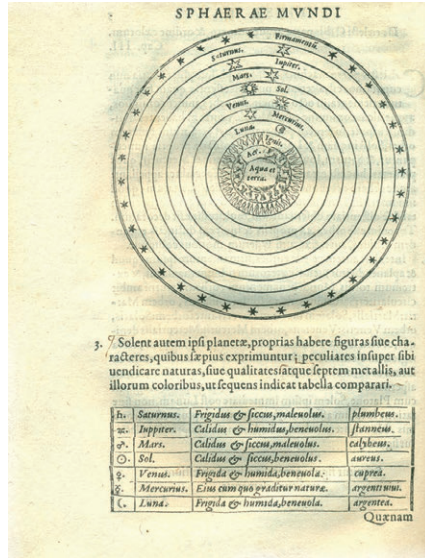 SPHAERAE MVNDI
Firmamentū.
Saturnus.
Iupiter.
Mars.
Sol.
Venus.
Mercurius.
Luna.
Ignis.
Aer.
Aqua et
terra.
3. Solent autem ipsi planetæ, proprias habere figuras siue cha-
racteres, quibus sæpius exprimuntur; peculiares insuper sibi
uendicare naturas, siue qualitates: atque septem metallis, aut
illorum coloribus, ut sequens indicat tabella comparari.
♄. Saturnus. Frigidus & siccus, maleuolus. plumbeus.
♃. Iuppiter. Calidus & humidus, beneuolus. stanneus.
♂. Mars. Calidus & siccus, maleuolus. calybeus.
☉. Sol. Calidus & siccus, beneuolus. aureus.
♀. Venus. Frigida & humida, beneuola. cuprea.
☿. Mercurius. Eius cum quo graditur naturæ. argenti uiui.
☾. Luna. Frigida & humida, beneuola. argentea.
Quænam